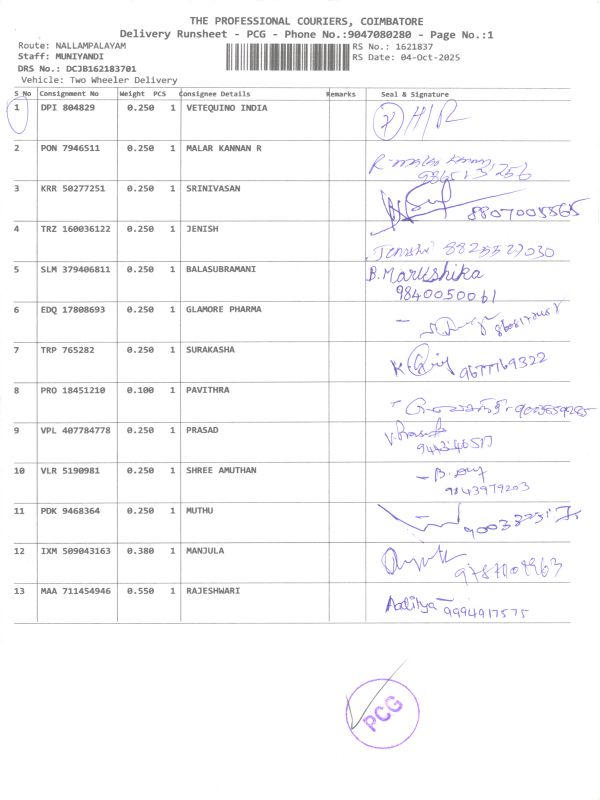 THE PROFESSIONAL COURIERS, COIMBATORE
Delivery Runsheet - PCG - Phone No.:9047080280 - Page No.:1
Route: NALLAMPALAYAM RS No.: 1621837
Staff: MUNIYANDI RS Date: 04-Oct-2025
DRS No.: DCJB162183701
Vehicle: Two Wheeler Delivery
S No Consignment No Weight PCS Consignee Details Remarks Seal & Signature
1 DPI 804829 0.250 1 VETEQUINO INDIA
2 PON 7946511 0.250 1 MALAR KANNAN R
3 KRR 50277251 0.250 1 SRINIVASAN
8807005565
4 TRZ 160036122 0.250 1 JENISH
5 SLM 379406811 0.250 1 BALASUBRAMANI B.Marushika
9840050061
6 EDQ 17808693 0.250 1 GLAMORE PHARMA
7 TRP 765282 0.250 1 SURAKASHA
9677769322
8 PRO 18451210 0.100 1 PAVITHRA
9 VPL 407784778 0.250 1 PRASAD V.Prasad
10 VLR 5190981 0.250 1 SHREE AMUTHAN
9843979203
11 PDK 9468364 0.250 1 MUTHU
12 IXM 509043163 0.380 1 MANJULA
13 MAA 711454946 0.550 1 RAJESHWARI Aaditya
9994917575
PCG